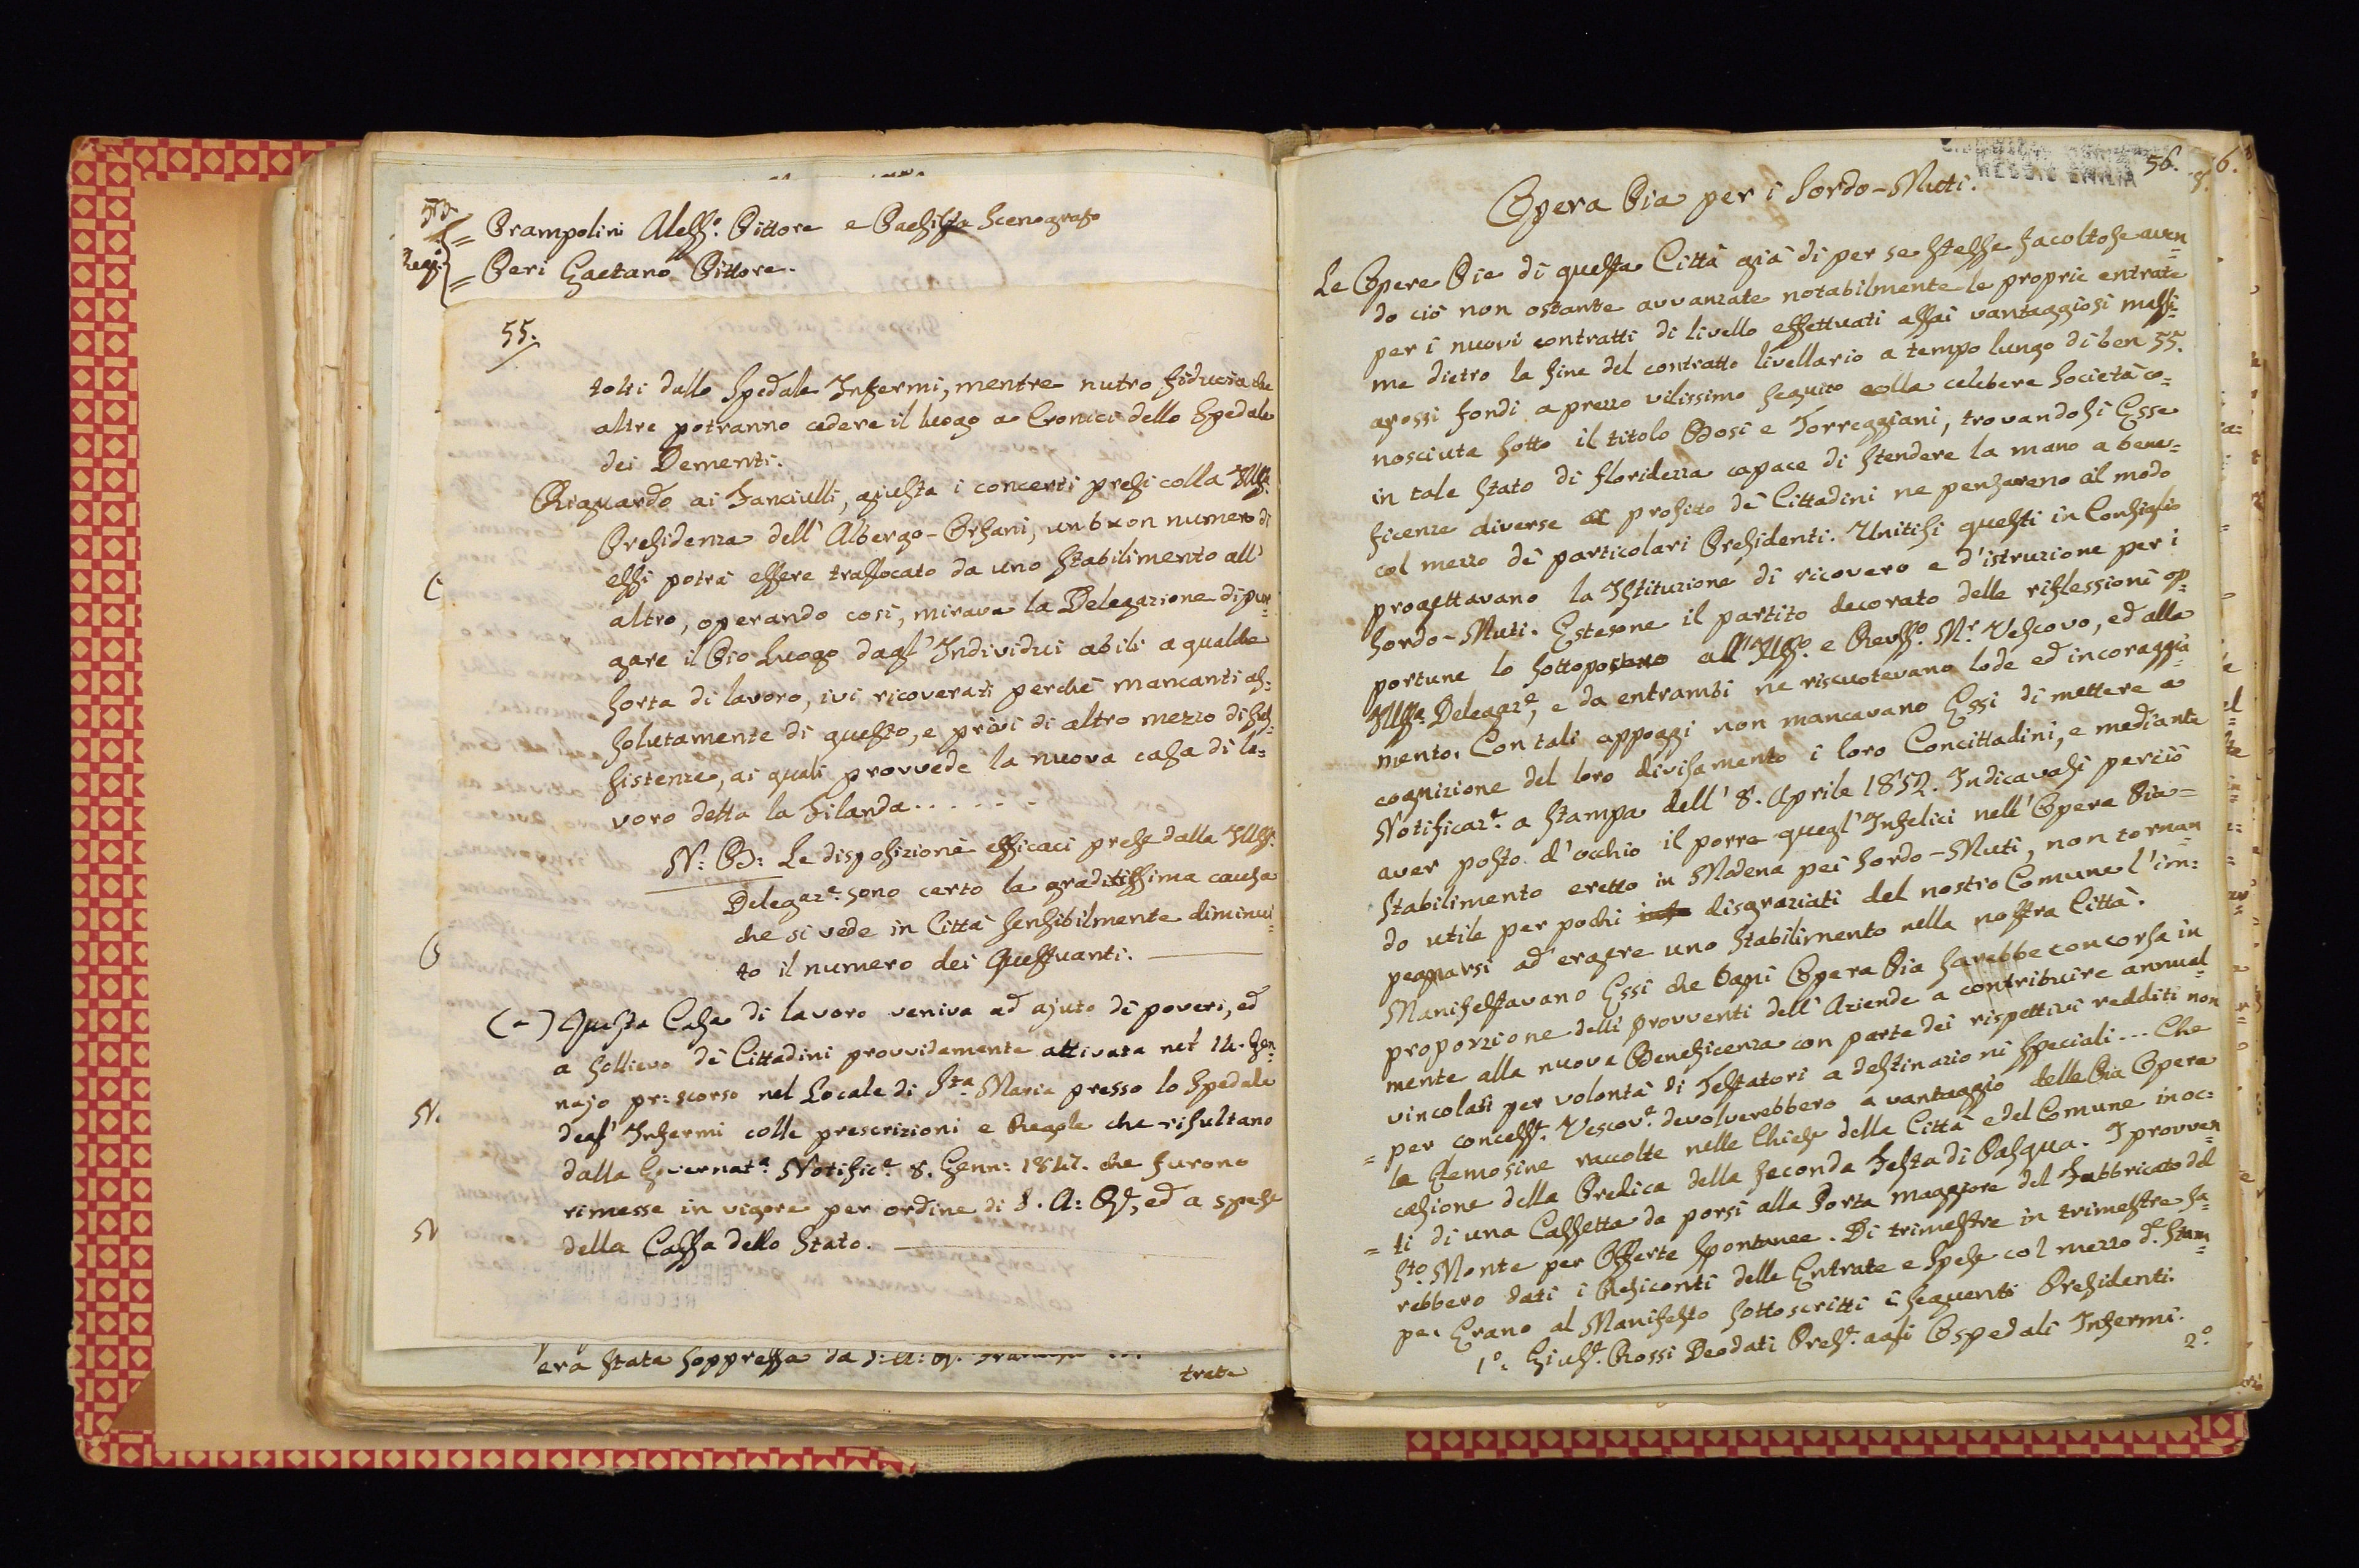 = Prampolini Aless.º Pittore e Paesista Scenografo
Regi.
= Peri Gaetano Pittore.
55.
tolti dallo Spedale Infermi, mentre nutro fiducia che
altre potranno cedere il luogo a Cronici dello Spedale
dei Dementi.
Riguardo ai Fanciulli, giusta i concerti presi colla Illª.
Presidenza dell' Albergo-Orfani, un buon numero di
essi potrà essere traslocato da uno Stabilimento all'
altro, operando così, mirava la Delegazione di pur=
gare il Pio Luogo dagl' Individui abili a qualche
sorta di lavoro, ivi ricoverati perchè mancanti as=
solutamente di questo, e privi di altro mezzo di sus=
sistenze, ai quali provvede la nuova casa di la=
voro detta la Filanda......
N: B: Le disposizioni efficaci prese dalla Illª.
Delegaz.e sono certo la graditissima causa
che si vede in Città sensibilmente diminui=
to il numero dei Questuanti.
(-) Questa Casa di lavoro veniva ad ajuto di poveri, ed
a sollievo dè Cittadini provvidamente attivata nel 14. Gen=
najo pr: scorso nel Locale di Sta. Maria presso lo Spedale
N.
degl' Infermi colle prescrizioni e Regole che risultano
dalla Governat.a Notific.e 8. Genn: 1847. che furono
rimesse in vigore per ordine di S. A: R., ed a spese
N
della Cassa dello Stato.
era stata soppressa da S: A: R.
trate
56.
6.
Opera Pia per i Sordo-Muti.
Le Opere Pie di questa Città già di per se stesse facoltose aven=
do ciò non ostante avvanzate notabilmente le proprie entrate
per i nuovi contratti di livello effettuati assai vantaggiosi massi=
me dietro la fine del contratto livellario a tempo lungo di ben 55.
grossi fondi a prezzo vilissimo seguito colla celebere Società co=
nosciuta sotto il titolo Bosi e Torreggiani, trovandosi Esse
in tale stato di floridezza capace di stendere la mano a bene=
ficenze diverse a profitto dè Cittadini ne pensarono il modo
col mezzo dè particolari Presidenti. Unitisi questi in Consiglio
progettavano la Istituzione di ricovero e d'istruzione per i
Sordo-Muti. Estesone il partito decorato delle riflessioni op=
portune lo sottoposero all' Illº. e Revº. Mr. Vescovo, ed alla
Illª. Delegaz.e, e da entrambi ne riscuotevano lode ed incoraggia=
mento. Con tali appoggi non mancavano Essi di mettere a
cognizione del loro divisamento i loro Concittadini, e mediante
Notificaz.e a stampa dell' 8. Aprile 1852. Indicavasi perciò
aver posto d'occhio il porre quegl' Infelici nell' Opera Pia=
Stabilimento eretto in Modena pei Sordo-Muti, non tornan=
do utile per pochi disgraziati del nostro Comune l'im=
pegnarsi ad erigere uno Stabilimento nella nostra Città.
Manifestavano Essi che Ogni Opera Pia sarebbe concorsa in
proporzione delli provventi dell' Aziende a contribuire annual=
mente alla nuova Beneficenza con parte dei rispettivi redditi non
vincolati per volontà di Testatori a destinazioni speciali... Che
= per concess.e Vescov.e devolverebbero a vantaggio della Pia Opera
le Elemosine raccolte nelle Chiese della Città e del Comune in oc=
casione della Predica della seconda Festa di Pasqua. I provven=
= ti di una Cassetta da porsi alla Porta maggiore del Fabbricato del
Sto. Monte per Offerte spontanee. Di trimestre in trimestre sa=
rebbero dati i Resiconti delle Entrate e Spese col mezzo d.e Stam=
pe. Erano al Manifesto sottoscritti i seguenti Presidenti.
1º. Gius.e Rossi Deodati Pres.e agli Ospedali Infermi.
2º.